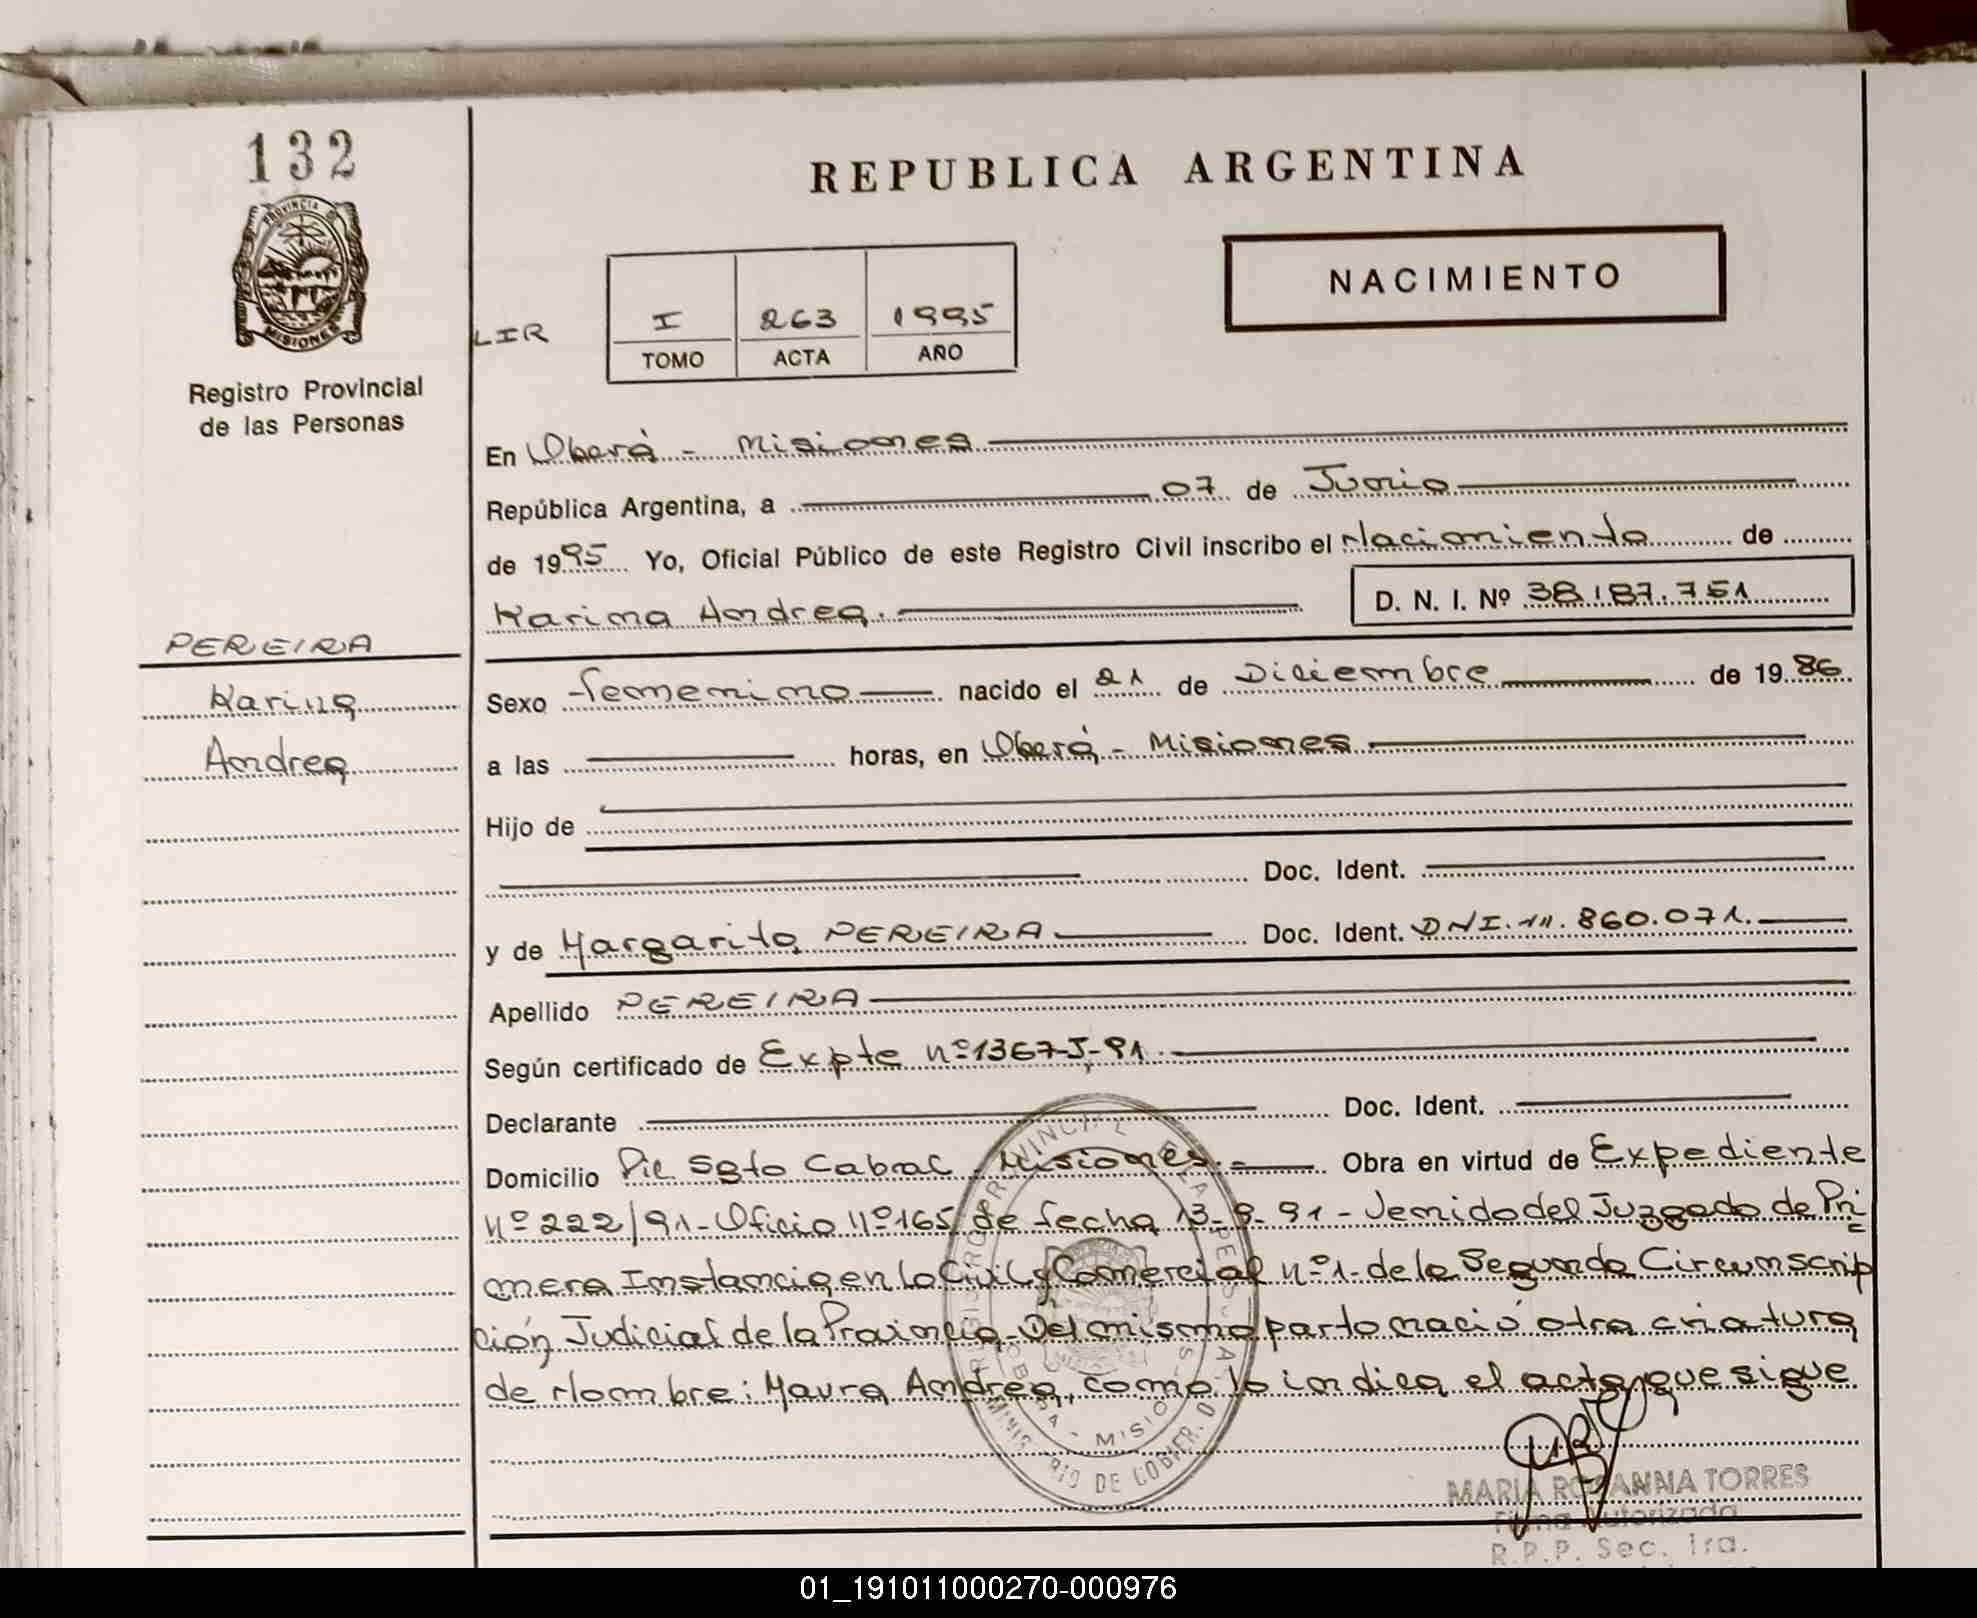 132
PROVINCIA DE
MISIONES
Registro Provincial
de las Personas
REPUBLICA ARGENTINA
NACIMIENTO
LIR
I 263 1995
TOMO ACTA AÑO
En Oberá - Misiones
República Argentina, a 07 de Junio
de 1995 Yo, Oficial Público de este Registro Civil inscribo el Nacimiento de
Karina Andrea. D. N. I. Nº 38.187.751
PEREIRA
Karina
Andrea
Sexo femenino nacido el 21 de Diciembre de 1986
a las horas, en Oberá - Misiones
Hijo de
Doc. Ident.
y de Margarita PEREIRA Doc. Ident. DNI. 11.860.071.
Apellido PEREIRA
Según certificado de Expte nº 1367-J-91.
Declarante Doc. Ident.
Domicilio Pic Sgto Cabral - Misiones.- Obra en virtud de Expediente
Nº 222/91 - Oficio Nº 165 de fecha 13-9-91 - Venido del Juzgado de Pri
mera Instancia en lo Civil y Comercial nº 1- de la Segunda Circunscrip
ción Judicial de la Provincia - Del mismo parto nació otra criatura
de Nombre: Maura Andrea, como lo indica el acta que sigue
MARIA ROSANNA TORRES
Firma Autorizada
R.P.P. Sec. 1ra.
01_191011000270-000976